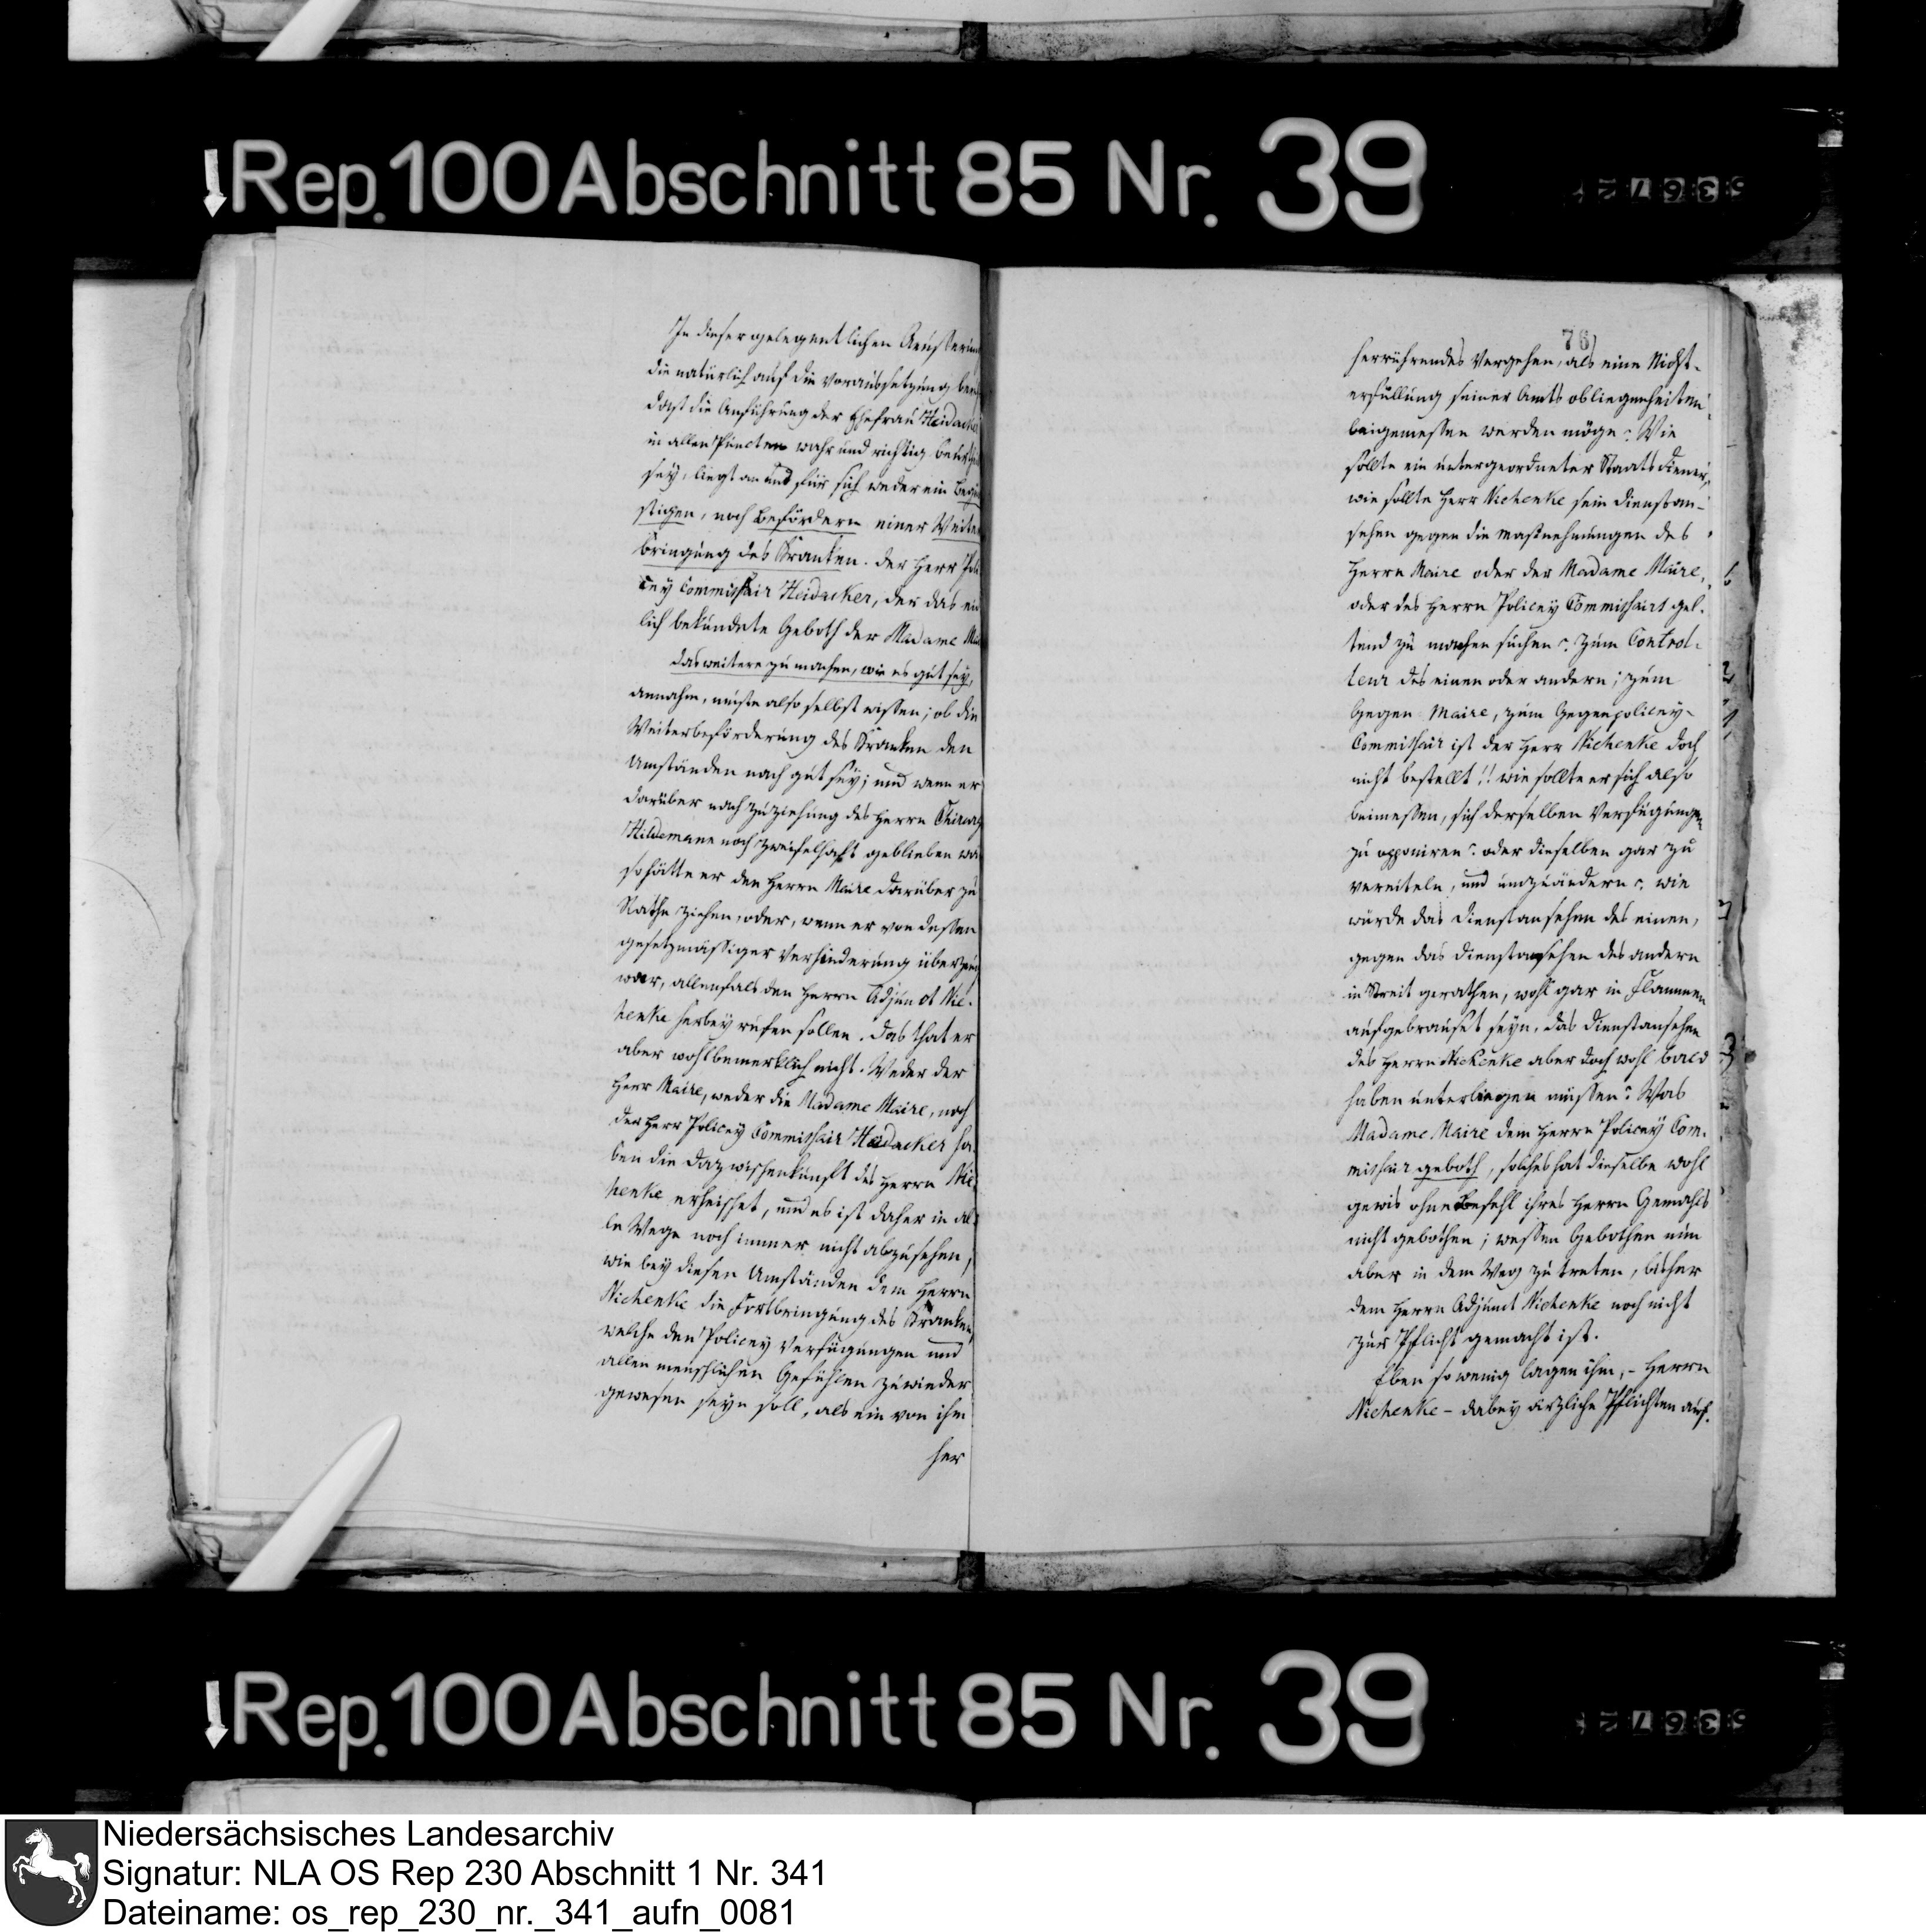 Rep. 100 Abschnitt 85 Nr. 39
In dieser gelegentlichen Aeusserun
die natürlich auf die Voraussetzung
dast die Anführung der Ehefrau Heidack
in allen Puncten wahr und richtig
sey, liegt an und für sich weder ein Begün
stigen, noch Befördern einer Weiter
bringung des Kranken. Der Herr Poli
cey Commissair Heidacker, der das
lich bekundete Geboth der Madame Mai
das weitere zu machen, wie es gut sey,
annahm, muste also selbst wissen; ob die
Weiterbeförderung des Kranken den
Umständen nach gut sey; und wenn er
darüber nach Zuziehung des Herrn Chirurg
Hildemann noch zweifelhaft geblieben wä
so hätte er den Herrn Maire darüber zu
Rathe ziehen, oder, wenn er von dessen
gesetzmässiger Verhinderung überzeug
war, allenfals den Herrn Adjunct Nie-
henke herbey rufen sollen. Das that er
aber wohlbemerklich nicht. Weder der
Herr Maire, weder die Madame Maire, noch
der Herr Policey Commissair Heidacker ha
ben die Dazwischenkunft des Herrn Nie
henke erheischet, und es ist daher in al
le Wege noch immer nicht abzusehen,
wie bey diesen Umständen dem Herrn
Niehenke die Fortbringung des Kranken,
welche den Policey Verfügungen und
allen menschlichen Gefühlen zuwieder
gewesen seyn soll, als ein von ihm
her
76
herrührendes Vergehen, als eine Nicht-
erfüllung seiner Amts obliegenheiten
beigemessen werden möge? Wie
sollte ein untergeordneter Staatsdiener,
wie sollte Herr Niehenke sein Dienstan-
sehen gegen die Mastnehmungen des
Herrn Maire oder der Madame Maire,
oder des Herrn Policey Commissairs gel-
tend zu machen suchen? zum Control-
leur des einen oder andern; zum
Gegen Maire, zum Gegenpolicey-
Commissair ist der Herr Niehenke doch
nicht bestellt!! wie sollte er sich also
beimessen, sich derselben Verfügungen
zu opponiren? oder dieselben gar zu
vereiteln, und umzuändern? wie
würde das Dienstansehen des einen,
gegen das Dienstansehen des andern
in Streit gerathen, wohl gar in Flammen
aufgebrauset seyn, das Dienstansehen
des Herrn Niehenke aber doch wohl bald
haben unterliegen müssen? Was
Madame Maire dem Herrn Policey Com-
missair geboth, solches hat dieselbe wohl
gewis ohne Befehl ihres Herrn Gemahls
nicht gebothen; wessen Gebothen nun
aber in dem Weg zu treten, bisher
dem Herrn Adjunct Niehenke noch nicht
zur Pflicht gemacht ist.
Eben so wenig lagen ihm, – Herrn
Niehenke – dabey ärzliche Pflichten auf.
Rep. 100 Abschnitt 85 Nr. 39
Niedersächsisches Landesarchiv
Signatur: NLA OS Rep 230 Abschnitt 1 Nr. 341
Dateiname: os_rep_230_nr._341_aufn_0081